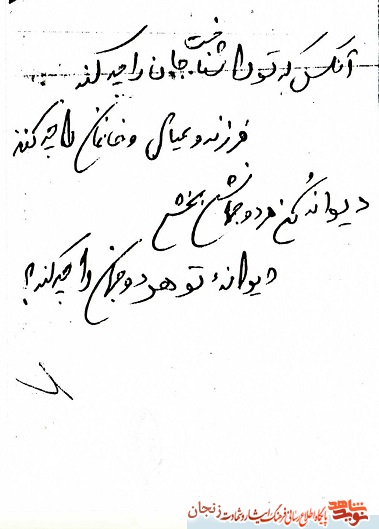 آنکس که تو را شناخت جان را چه کند
فرزند و عیال و خانمان را چه کند
دیوانه کنی هر دو جهانش بخشی
دیوانهٔ تو هر دو جهان را چه کند؟
نوید شاهد
پایگاه اطلاع رسانی فرهنگ ایثار و شهادت زنجان